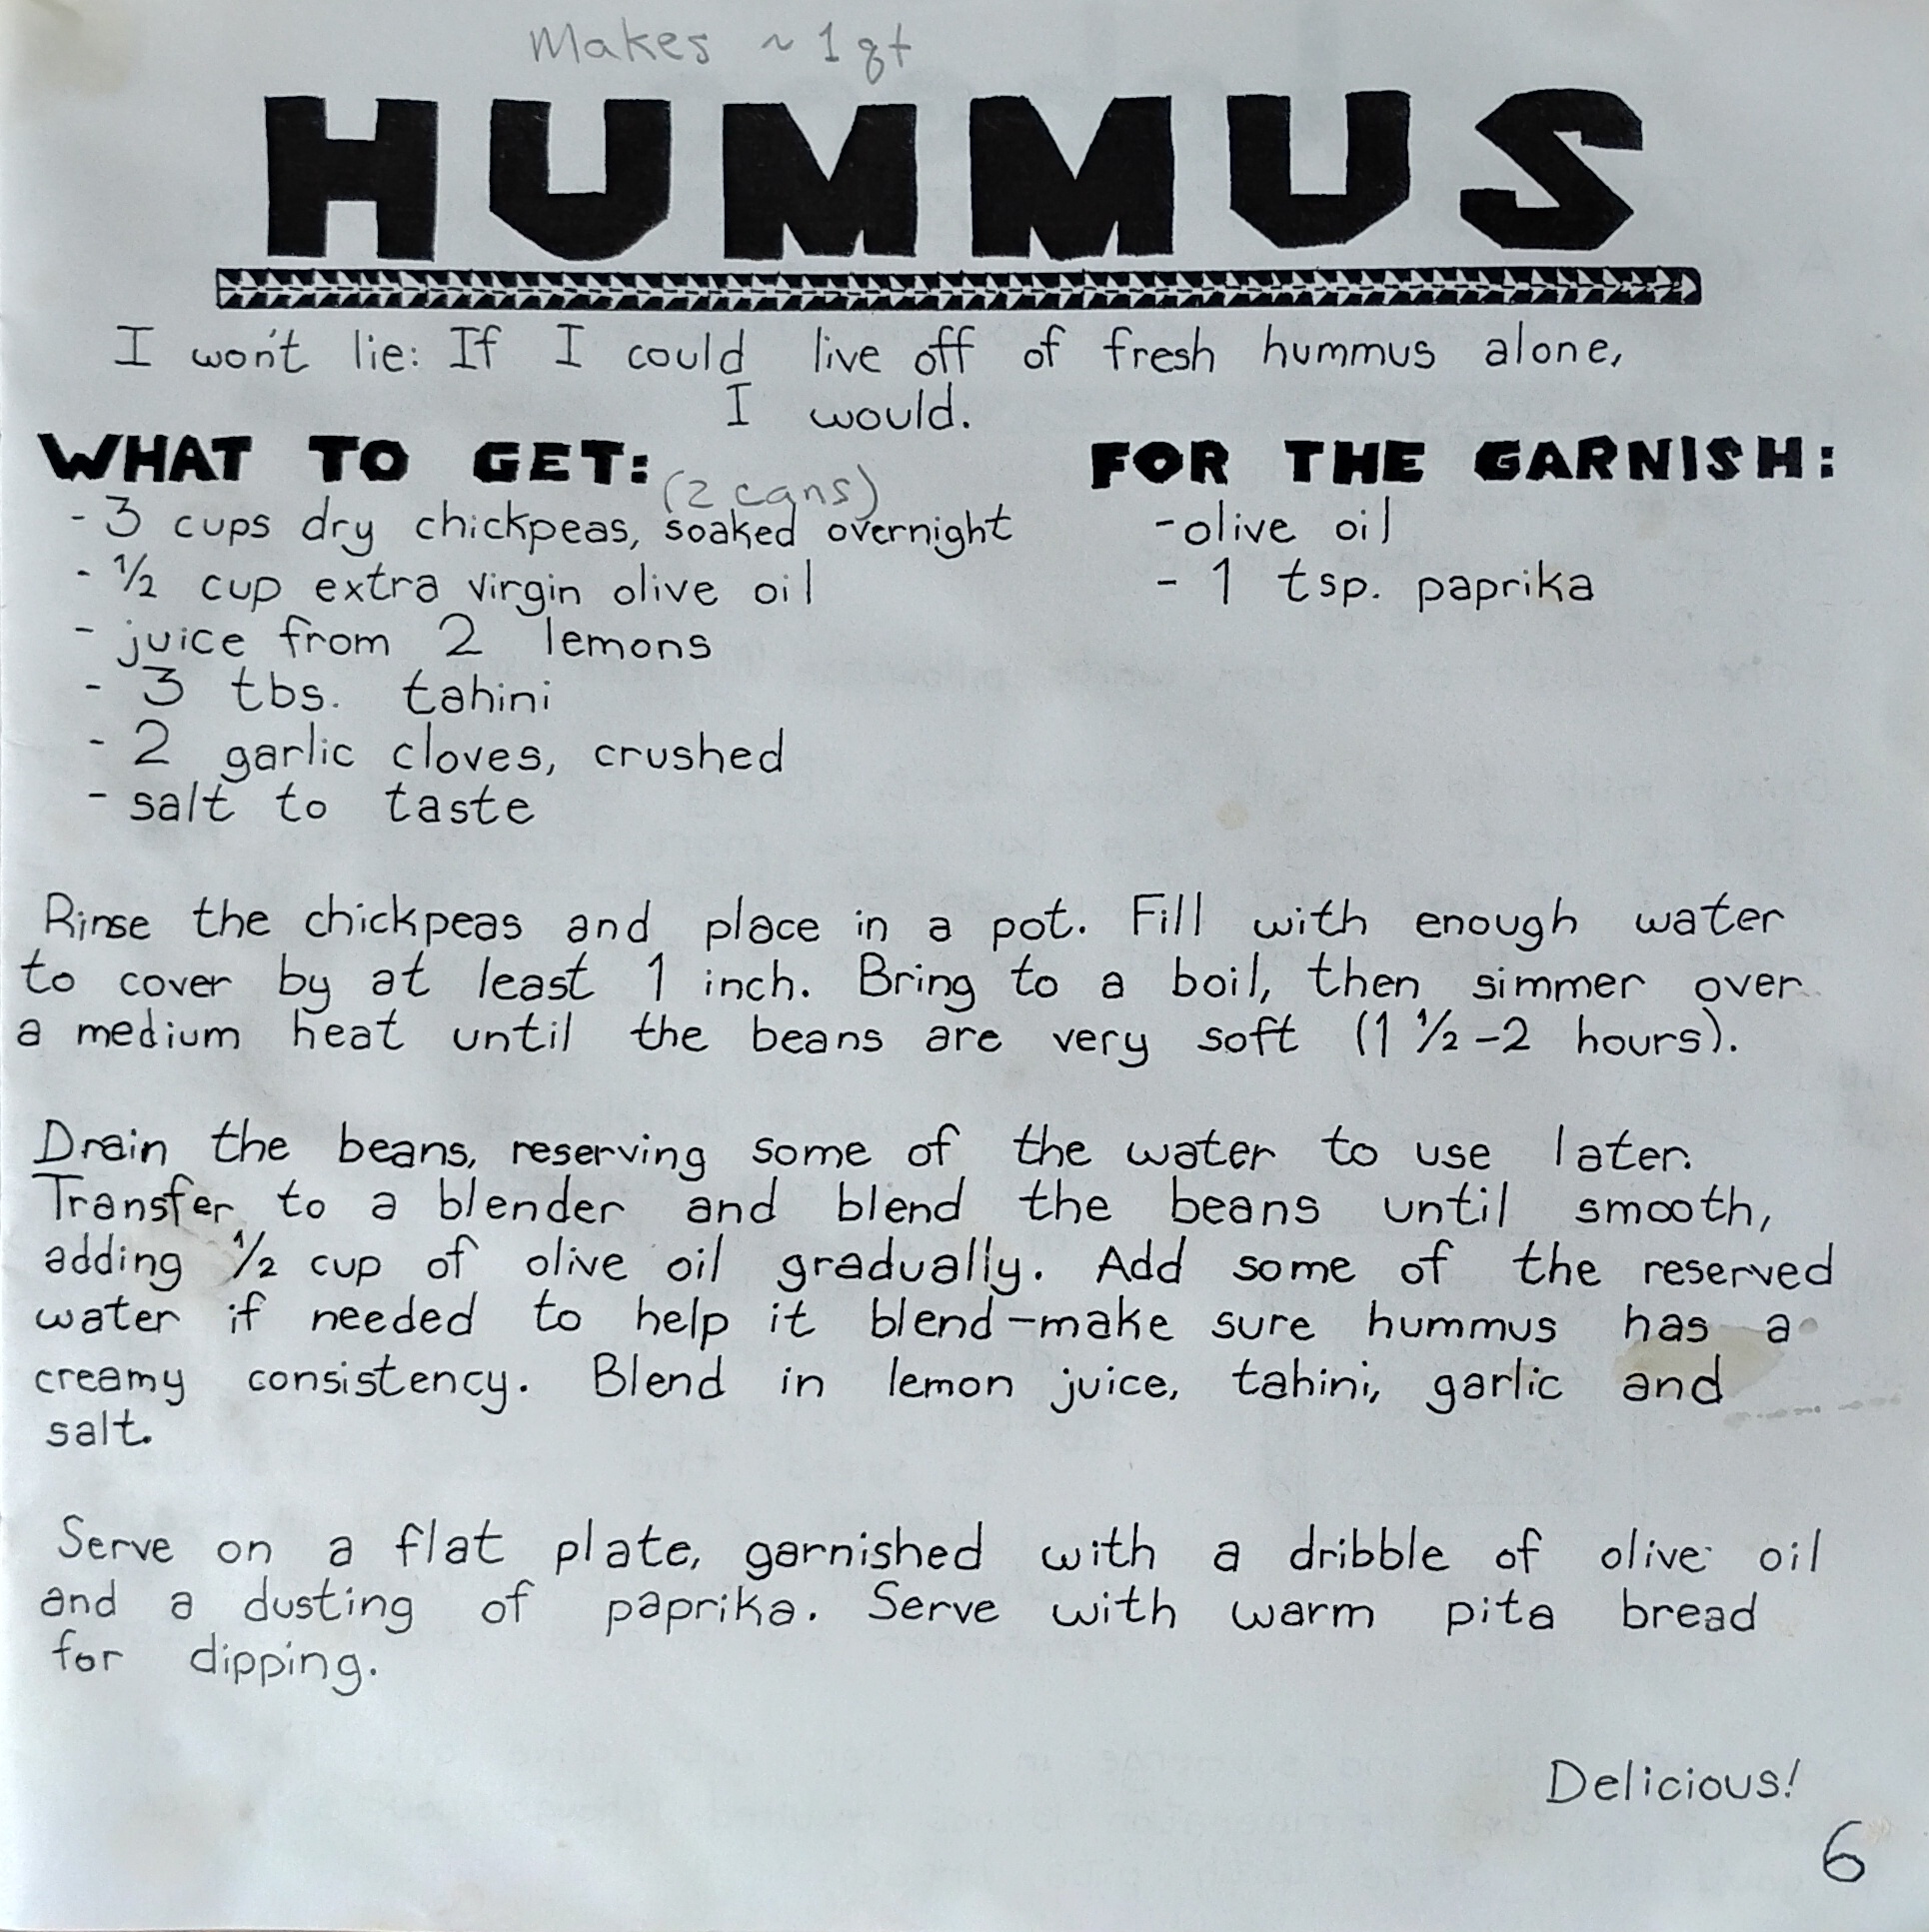 Makes ~ 1 qt
HUMMUS
I won't lie: If I could live off of fresh hummus alone,
I would.
WHAT TO GET:
(2 cans)
- 3 cups dry chickpeas, soaked overnight
- ½ cup extra virgin olive oil
- juice from 2 lemons
- 3 tbs. tahini
- 2 garlic cloves, crushed
- salt to taste
FOR THE GARNISH:
-olive oil
- 1 tsp. paprika
Rinse the chickpeas and place in a pot. Fill with enough water
to cover by at least 1 inch. Bring to a boil, then simmer over
a medium heat until the beans are very soft (1 ½-2 hours).
Drain the beans, reserving some of the water to use later.
Transfer to a blender and blend the beans until smooth,
adding ½ cup of olive oil gradually. Add some of the reserved
water if needed to help it blend-make sure hummus has a
creamy consistency. Blend in lemon juice, tahini, garlic and
salt.
Serve on a flat plate, garnished with a dribble of olive oil
and a dusting of paprika. Serve with warm pita bread
for dipping.
Delicious!
6